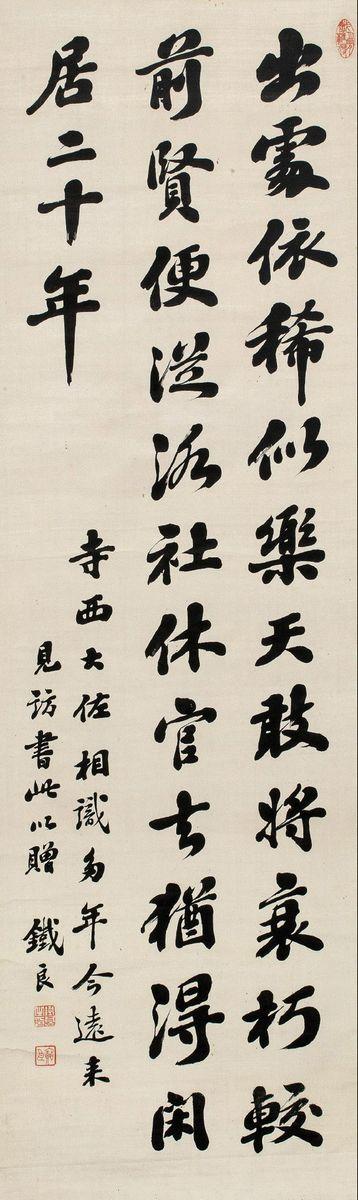 出處依稀似樂天敢將衰朽較
前賢便從洛社休官去猶得閑
居二十年
寺西大佐相識多年今遠來
見訪書此以贈 鐵良